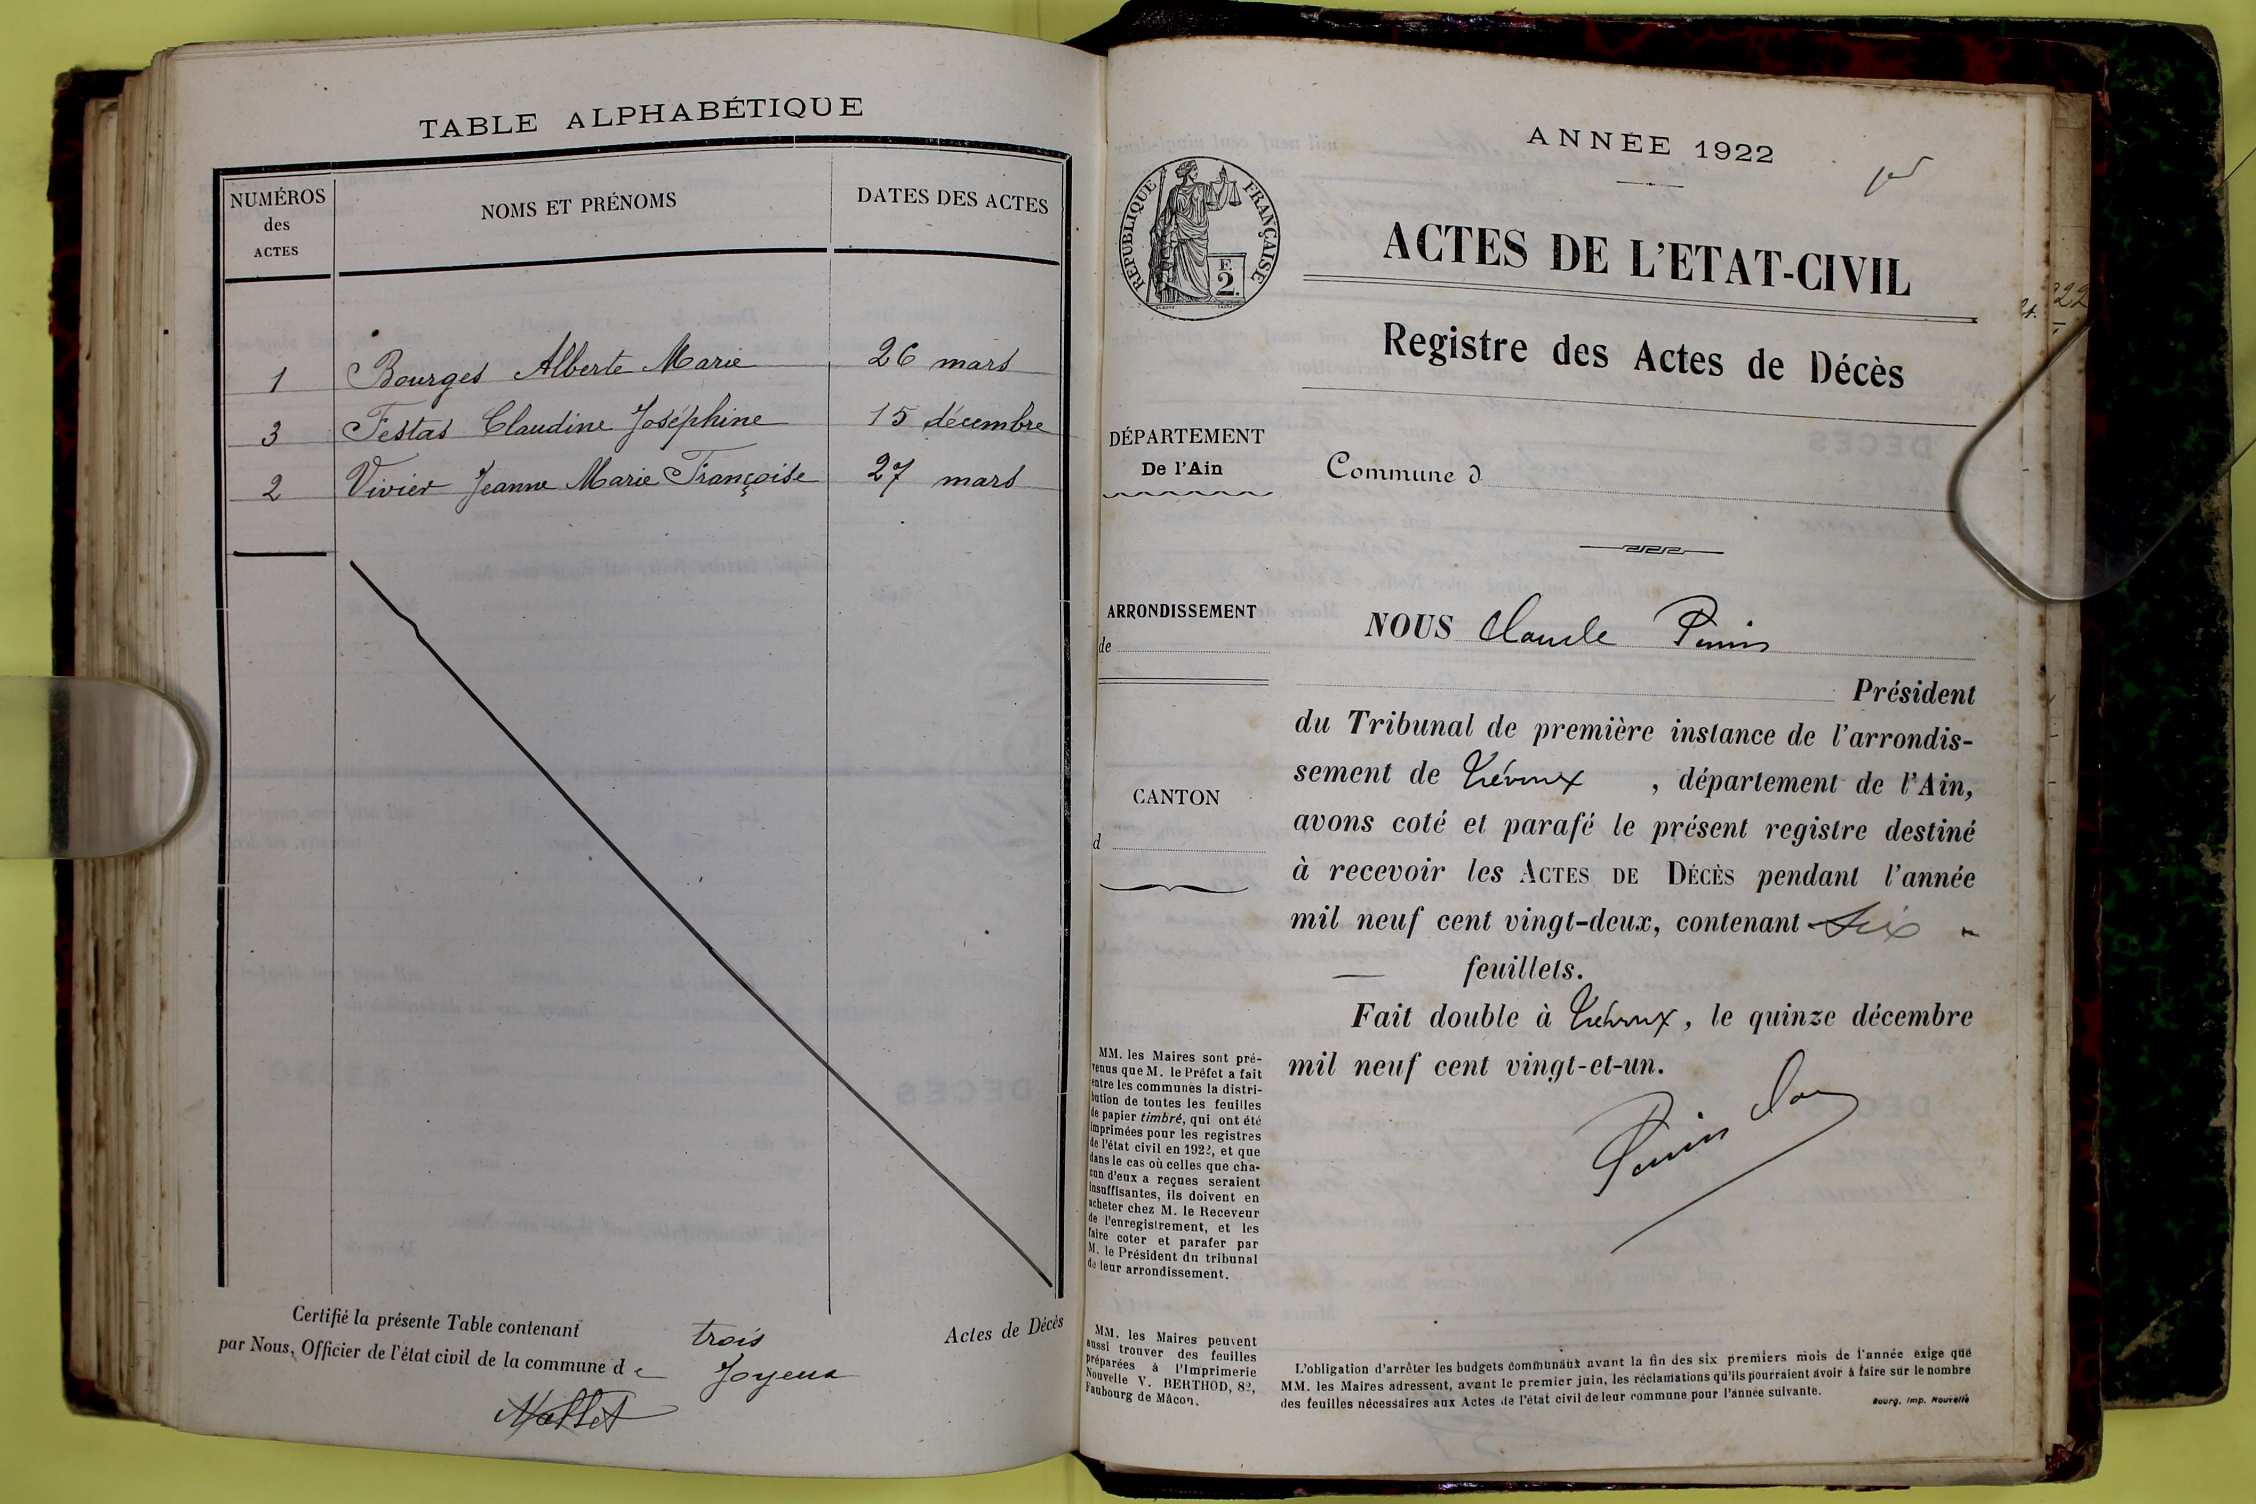 TABLE ALPHABÉTIQUE
NUMÉROS
des
ACTES
NOMS ET PRÉNOMS
DATES DES ACTES
1 Bourges Alberte Marie 26 mars
3 Festas Claudine Joséphine 15 décembre
2 Vivier Jeanne Marie Françoise 27 mars
Certifié la présente Table contenant trois Actes de Décès
par Nous, Officier de l'état civil de la commune de Joyeux
ANNÉE 1922
REPUBLIQUE FRANÇAISE
F.
2.
ACTES DE L'ETAT-CIVIL
Registre des Actes de Décès
DÉPARTEMENT
De l'Ain
Commune d
ARRONDISSEMENT
de
CANTON
d
NOUS Claude
Président
du Tribunal de première instance de l'arrondis-
sement de Trévoux, département de l'Ain,
avons coté et parafé le présent registre destiné
à recevoir les ACTES DE DÉCÈS pendant l'année
mil neuf cent vingt-deux, contenant six
feuillets.
Fait double à Trévoux, le quinze décembre
mil neuf cent vingt-et-un.
MM. les Maires sont pré-
venus que M. le Préfet a fait
entre les communes la distri-
bution de toutes les feuilles
de papier timbré, qui ont été
imprimées pour les registres
de l'état civil en 1922, et que
dans le cas où celles que cha-
cun d'eux a reçues seraient
insuffisantes, ils doivent en
acheter chez M. le Receveur
de l'enregistrement, et les
faire coter et parafer par
M. le Président du tribunal
de leur arrondissement.
MM. les Maires peuvent
aussi trouver des feuilles
préparées à l'Imprimerie
Nouvelle V. BERTHOD, 82,
Faubourg de Mâcon.
L'obligation d'arrêter les budgets communaux avant la fin des six premiers mois de l'année exige que
MM. les Maires adressent, avant le premier juin, les réclamations qu'ils pourraient avoir à faire sur le nombre
des feuilles nécessaires aux Actes de l'état civil de leur commune pour l'année suivante.
Bourg. Imp. Nouvelle